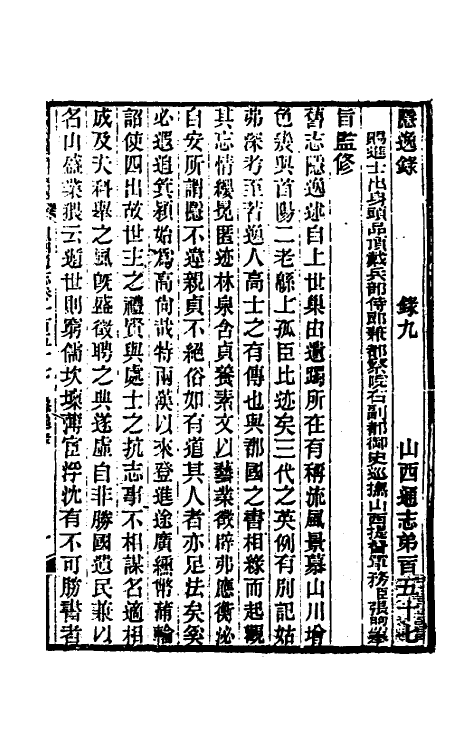 隱逸錄 錄九 山西通志弟百五十七
賜進士出身頭品頂戴兵部侍郎兼都察院右副都御史巡撫山西提督軍務臣張煦奉
旨監修
舊志隱逸述自上世巢由遺躅所在有稱流風景慕山川增
色幾與首陽二老緜上孤臣比迹矣三代之英例有別記姑
弗深考至若逸人高士之有傳也與郡國之書相緣而起觀
其忘情纓冕匿迹林泉含貞養素文以藝業徵辟弗應衡泌
自安所謂隱不違親貞不絕俗如有道其人者亦足法矣奚
必遐追箕潁始爲高尚哉特兩漢以來登進途廣纁幣蒲輪
詔使四出故世主之禮賢與處士之抗志事不相謀名適相
成及夫科舉之風旣盛徵聘之典遂虛自非勝國遺民兼以
名山盛業猥云遁世則窮儒坎壈薄宦浮沈有不可勝書者